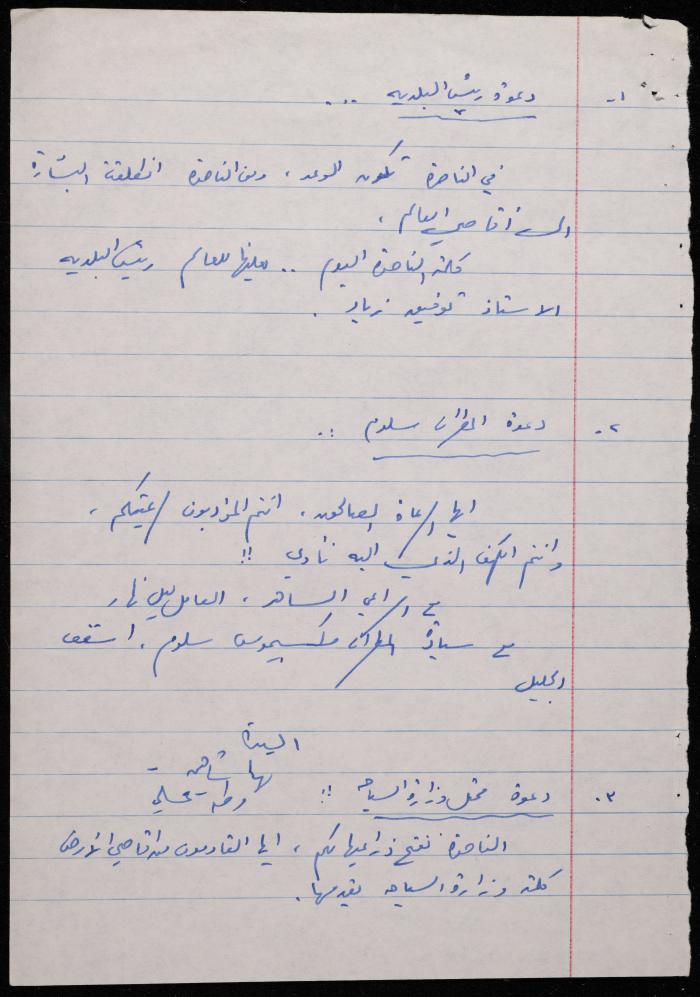 ١- دعوة رئيس البلديه ...
في الناصرة تكون الوعد، ومن الناصرة انطلقت البشارة
الى أقاصي العالم،
كلمة الناصرة اليوم .. يعلنها للعالم رئيس البلديه
الاستاذ توفيق زياد .
٢- دعوة المطران سلوم :.
ايها الرعاة الصالحون، انتم المؤدبون لرعيتكم،
وانتم الكهف الذي اليه نأوي !!
مع الراعي الساهر، العامل ليل نهار
مع سيادة المطران مكسيموس سلوم، اسقف
الجليل
السيدة
نها
٣- دعوة ممثل وزارة السياحه !!
الناصرة تفتح ذراعيها لكم، ايها القادمون من اقاصي الأرض
كلمة وزارة السياحه يقدمها.